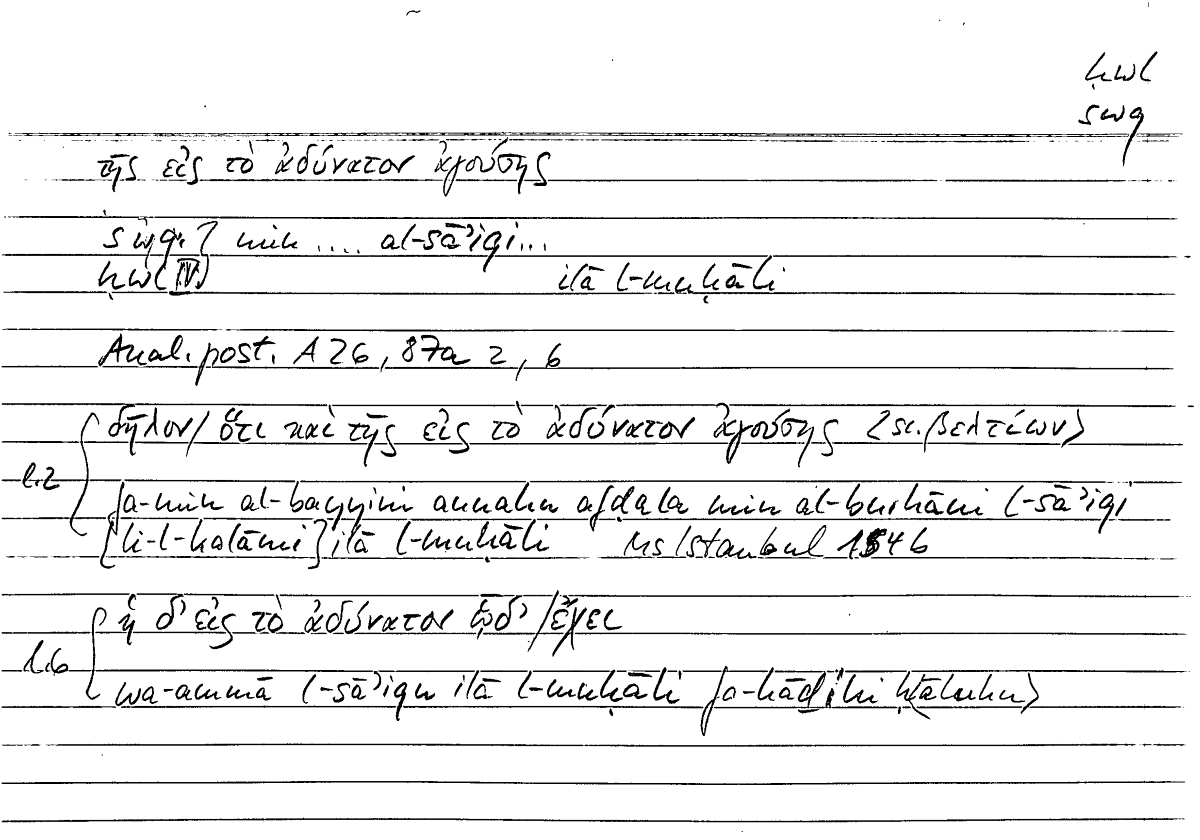 ḥwl
swq
τῆς εἰς τὸ ἀδύνατον ἀγούσης
swq. min .... al-sāʾiqi...
ḥwl IV) ilā l-muḥāli
Anal. post. A 26, 87a 2, 6
δῆλον/ὅτι καὶ τῆς εἰς τὸ ἀδύνατον ἀγούσης 〈sc. βελτίων〉
l.2
fa-min al-bayyini annahu afḍala min al-burhāni l-sāʾiqi
[li-l-kalāmi] ilā l-muḥāli Ms Istanbul 1546
ἡ δ' εἰς τὸ ἀδύνατον ὧδ'/ἔχει
l.6
wa-ammā l-sāʾiqu ilā l-muḥāli fa-hāḏihi ḥāluhu〉